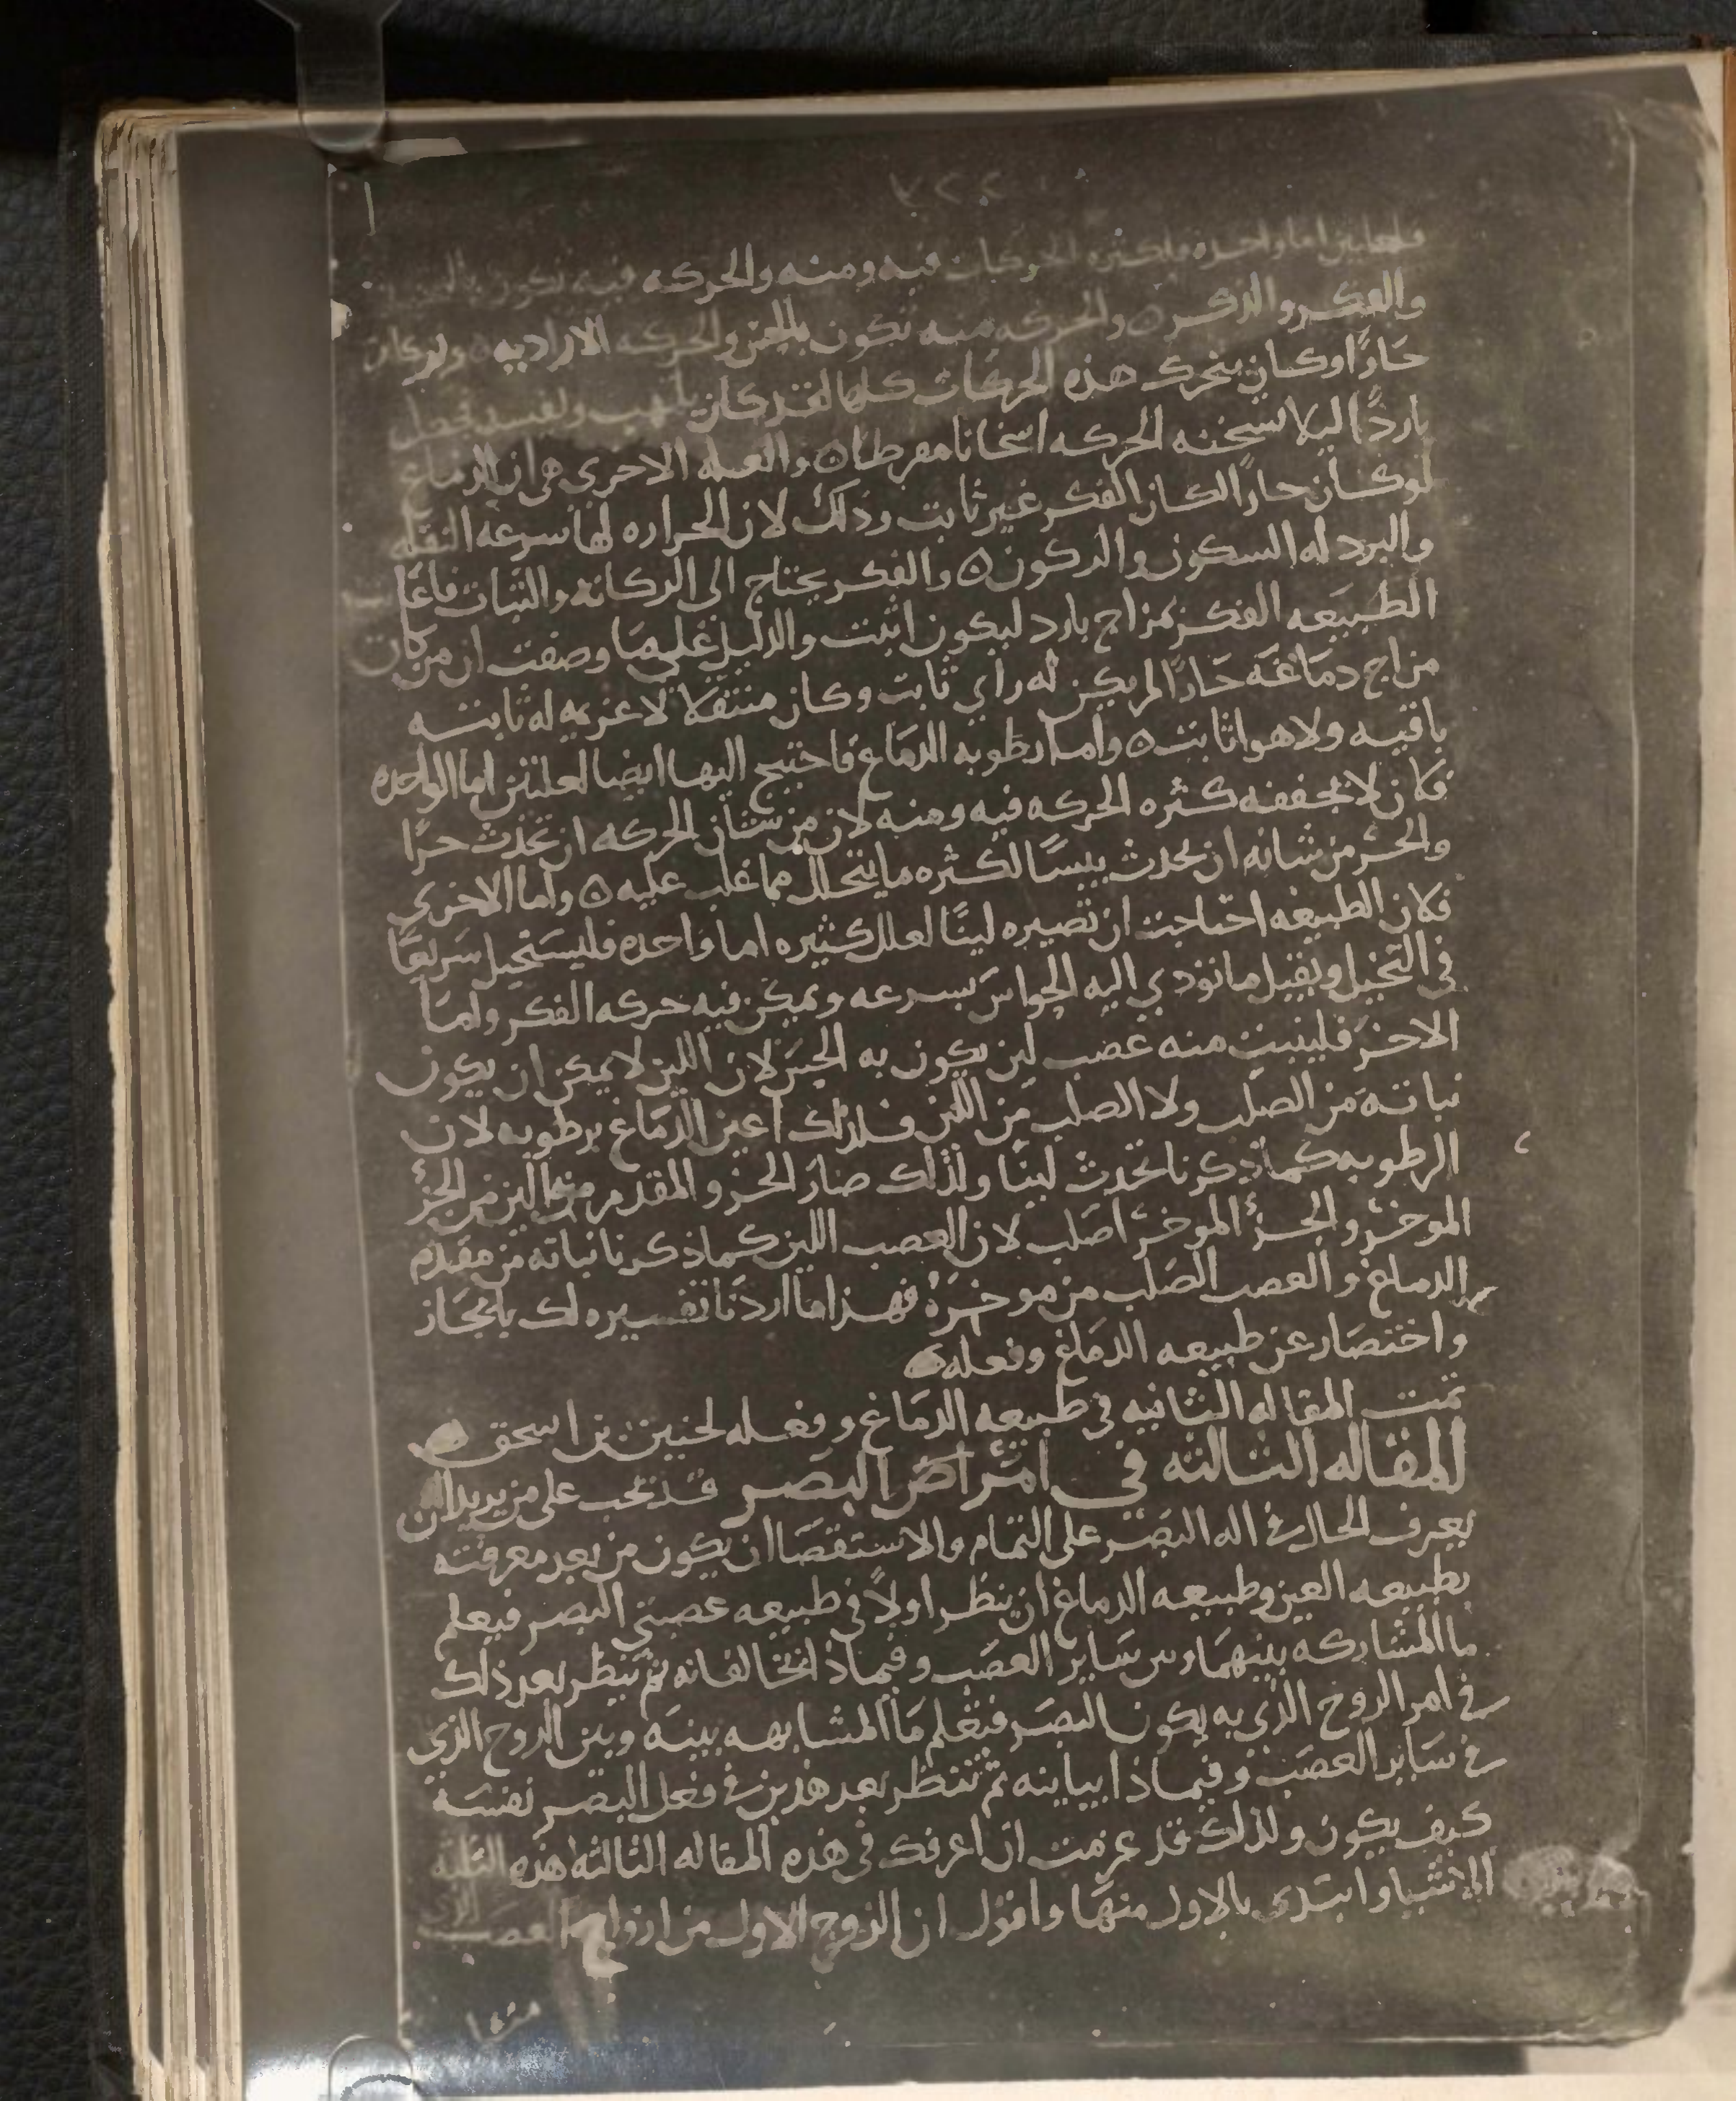 فلعلتين اما واحده فلكثره الحركات فيه ومنه والحركه فيه تكون بالتخييل
والفكر والذكر ٥ والحركه منه تكون بالحس والحركه الاراديه ٥ ولو كان
حارًا وكان يتحرك هذه الحركات كلها لقد كان يلتهب ويفسد فجعل
باردًا ليلا تسخنه الحركه اسخانا مفرطا ٥ والعله الاخرى هي ان الدماغ
لو كان حارًا لكان الفكر غير ثابت وذلك لان الحراره لها سرعه النقله
والبرد له السكون والركون ٥ والفكر يحتاج الى الركانه والثبات فاعانت
الطبيعه الفكر بمزاج بارد ليكون اثبت والدليل على ما وصفت ان من كان
مزاج دماغه حارًا لم يكن له راي ثابت وكان متنقلا لا عزيمه له ثابته
باقيه ولا هوا ثابت ٥ واما رطوبه الدماغ فاحتيج اليها ايضا لعلتين اما الواحده
فكان لا يجففه كثره الحركه فيه ومنه لان من شان الحركه ان تحدث حرًا
والحر من شانه ان يحدث يبسًا لكثره ما يتحلل مما غلب عليه ٥ واما الاخرى
فلان الطبيعه احتاجت ان تصيره لينًا لعلل كثيره اما واحده فليستحيل سريعًا
في التخيل ويقبل ما تودي اليه الحواس بسرعه ويمكن فيه حركه الفكر واما
الاخر فلينبت منه عصب لين يكون به الحس لان اللين لا يمكن ان يكون
نباته من الصلب ولا الصلب من اللين فلذلك اعين الدماغ برطوبه لان
الرطوبه كما ذكرنا تحدث لينًا ولذلك صار الجزو المقدم منهما الين من الجزٔ
الموخر والجزٔ الموخر اصلب لان العصب اللين كما ذكرنا نباته من مقدم
الدماغ والعصب الصلب من موخره فهذا ما اردنا تفسيره لك بايجاز
واختصار عن طبيعه الدماغ وفعله
تمت المقاله الثانيه في طبيعه الدماغ وفعله لحنين بن اسحق
المقاله الثالثه في امراض البصر قد يجب على من يريد ان
يعرف الحال في اله البصر على التمام والاستقصا ان يكون من بعد معرفته
بطبيعه العين وطبيعه الدماغ ان ينظر اولًا في طبيعه عصبتي البصر فيعلم
ما المشاركه بينهما وبين ساير العصب وفيماذا تخالفانه ثم ينظر بعد ذلك
في امر الروح الذي به يكون البصر فتعلم ما المشابهه بينه وبين الروح الذي
في ساير العصب وفيماذا يباينه ثم تنظر بعد هذين في فعل البصر نفسه
كيف يكون ولذلك قد عزمت ان اعرفك في هذه المقاله الثالثه هذه الثلثه
الاشيا وابتدى بالاول منها واقول ان الزوج الاول من ازواج العصب